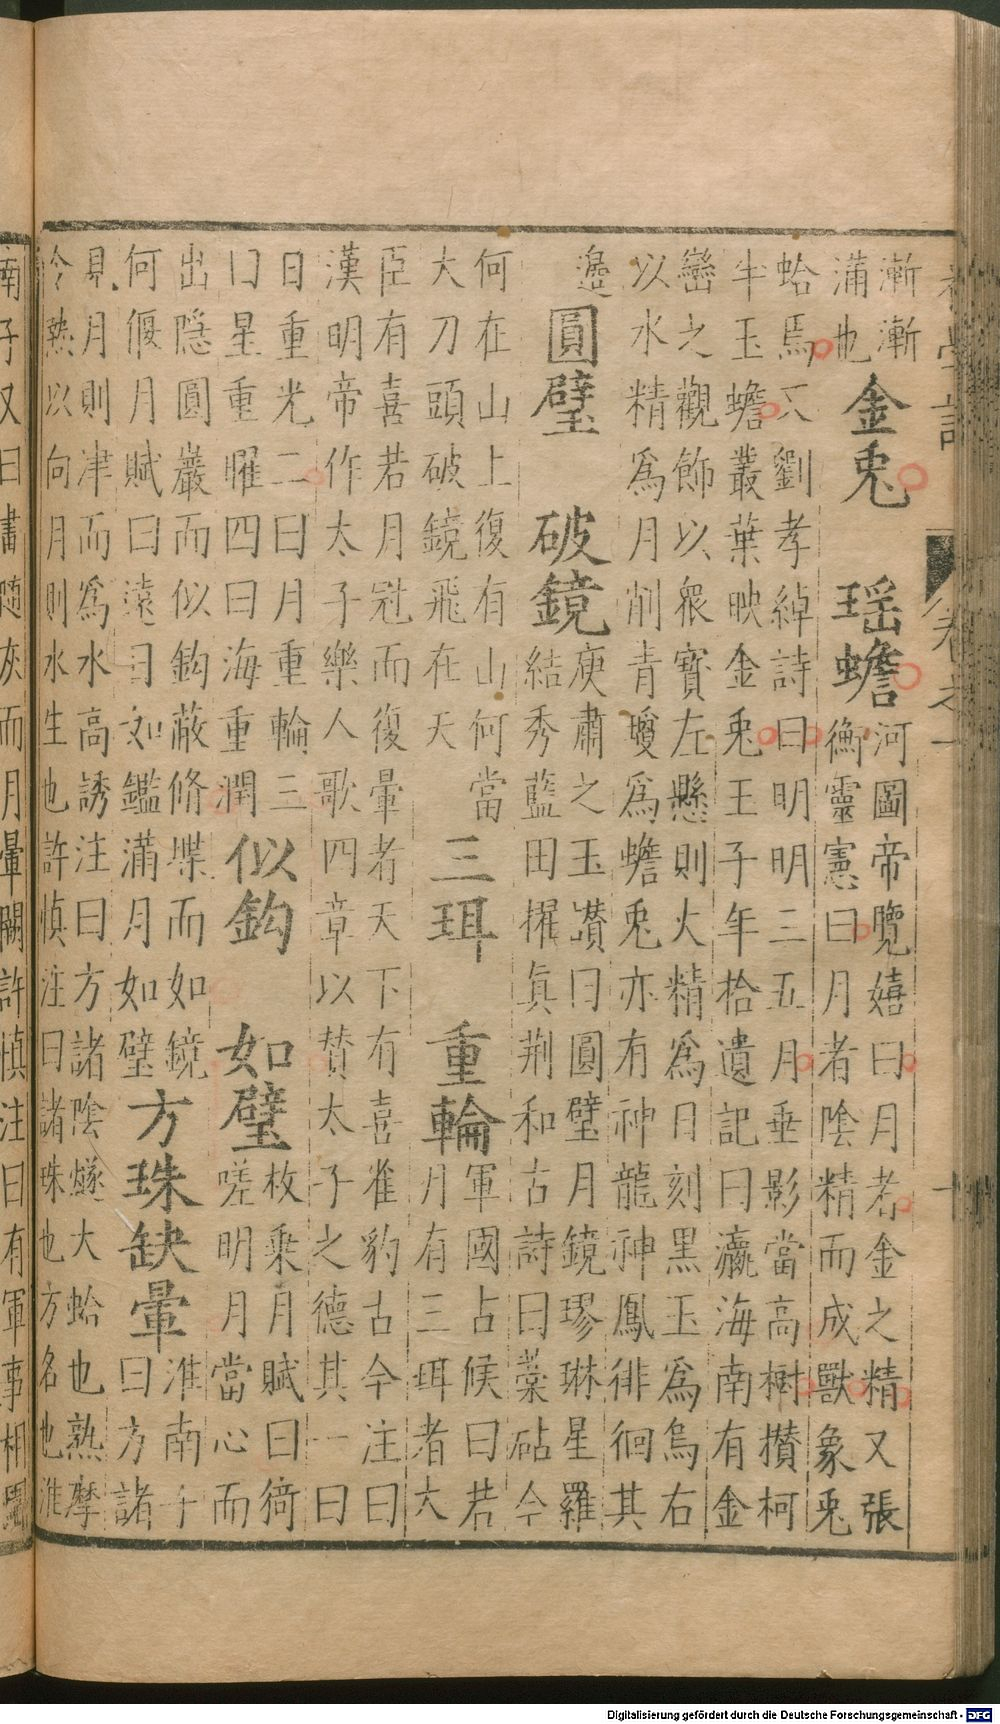 初學記 卷之一 十
漸漸
滿也
金兎 瑤蟾
河圖帝覽嬉曰月者金之精又張
衡靈憲曰月者陰精而成獸象兎
蛤焉又劉孝綽詩曰明明三五月垂影當高樹攅柯
半玉蟾叢葉映金兎王子年拾遺記曰瀛海南有金
巒之觀飾以衆寶左懸則火精爲日刻黒玉爲烏右
以水精爲月削青瓊爲蟾兎亦有神龍神鳳徘徊其
邉
圓璧 破鏡
庾肅之玉讃曰圓璧月鏡璆琳星羅
結秀藍田擢眞荆和古詩曰藁砧今
何在山上復有山何當
大刀頭破鏡飛在天
三珥 重輪
軍國占候曰若
月有三珥者大
臣有喜若月冠而復暈者天下有喜崔豹古今注曰
漢明帝作太子樂人歌四章以賛太子之德其一曰
日重光二曰月重輪三
曰星重曜四曰海重潤
似鈎 如璧
枚乗月賦曰猗
嗟明月當心而
出隠圓巖而似鈎蔽脩堞而如鏡
何偃月賦曰遠日如鑑滿月如璧
方珠缺暈
淮南子
曰方諸
見月則津而爲水高誘注曰方諸陰燧大蛤也熟摩
令熱以向月則水生也許慎注曰諸珠也方名也淮
南子又曰畫隨灰而月暈闕許慎注曰有軍事相圍
Digitalisierung gefördert durch die Deutsche Forschungsgemeinschaft - DFG